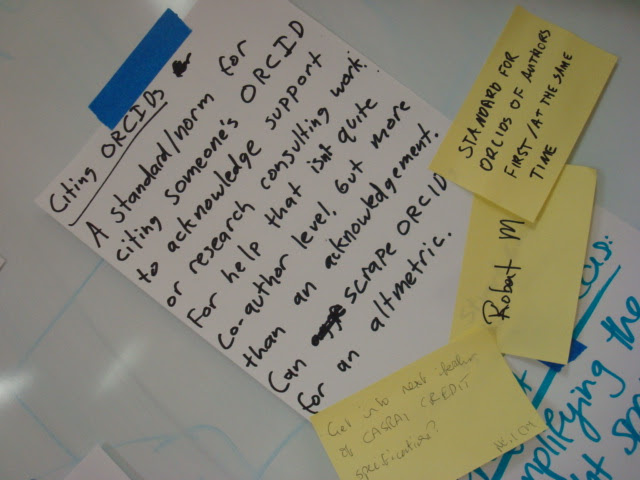 Citing ORCIDs
A standard/norm for
citing someone's ORCID
to acknowledge support
or research consulting work.
For help that isn't quite
Co-author level, but more
than an acknowledgement.
Can scrape ORCID
for an altmetric.
Get into next
of CASRAI CREDIT
specification?
Robert M
STANDARD FOR
ORCIDS OF AUTHORS
FIRST/AT THE SAME
TIME
mplifying the